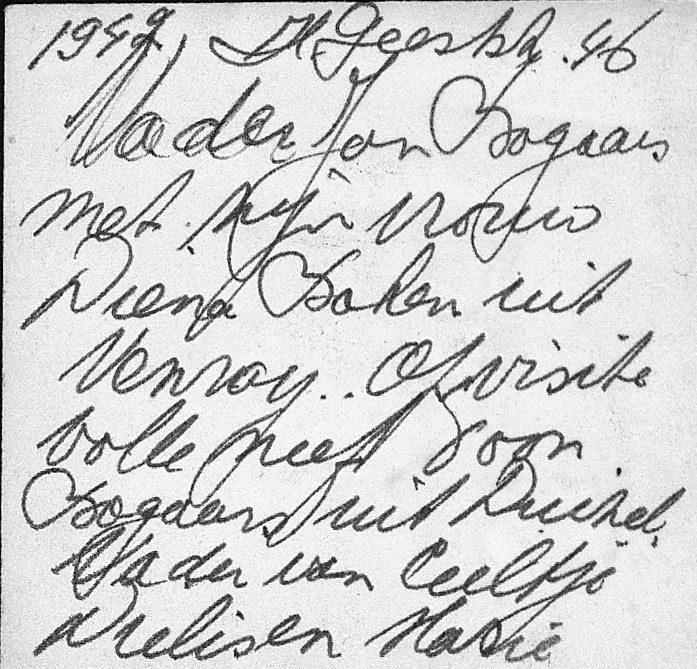 1949, H Geeststr. 46
Vader Jan Bogaars
met zijn vrouw
Diena Baken uit
Venray.. Op visite
volle neef Toon
Bogaars uit Duizel.
Vader van Ceeltje
Dielisen Marie